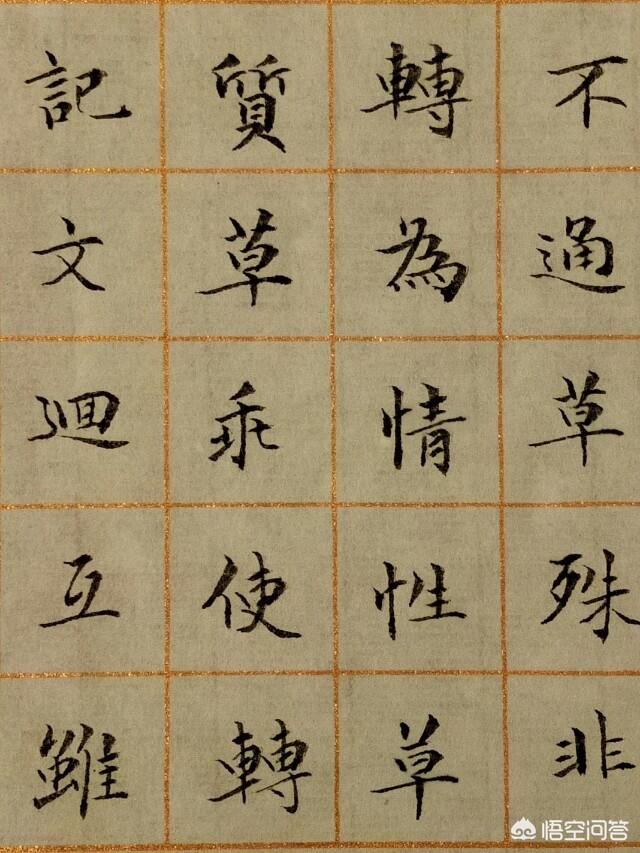 不通草殊非
轉為情性草
質草乖使轉
記文廻互雖
悟空问答